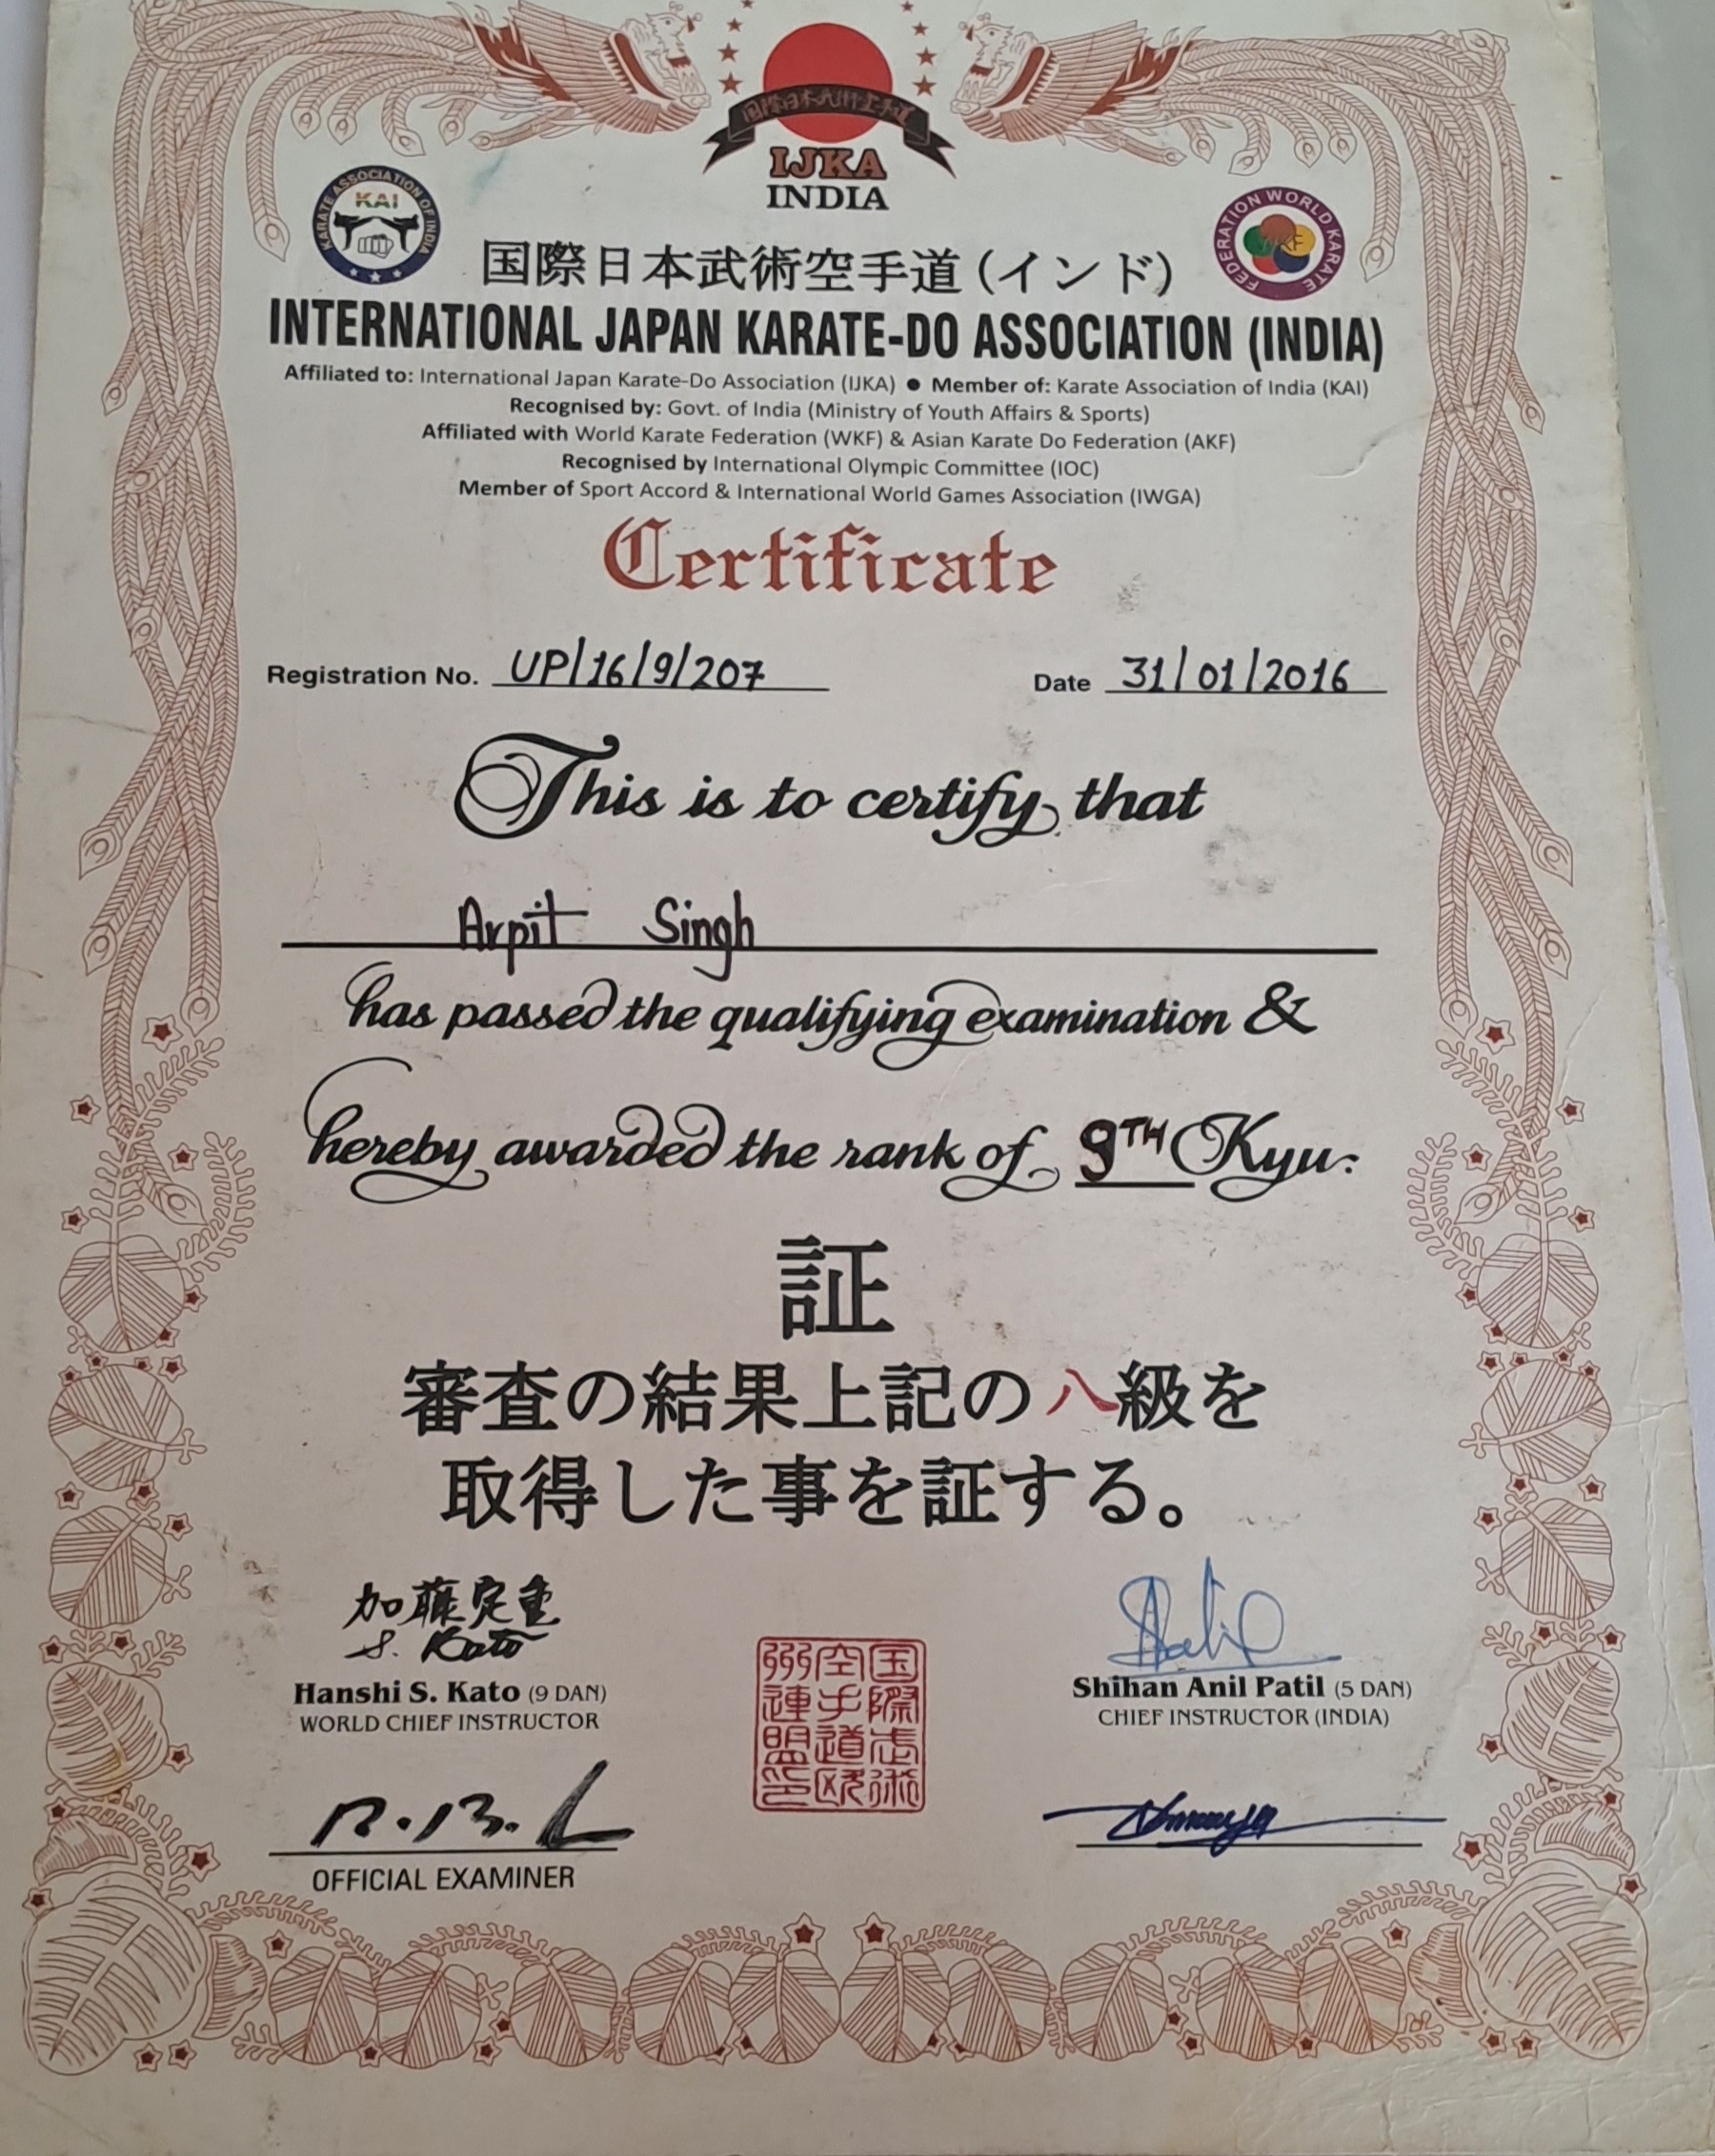 国際日本武術空手道
IJKA
INDIA
KARATE ASSOCIATION OF INDIA
KAI
WORLD KARATE FEDERATION
WKF
国際日本武術空手道(インド)
INTERNATIONAL JAPAN KARATE-DO ASSOCIATION (INDIA)
Affiliated to: International Japan Karate-Do Association (IJKA) ● Member of: Karate Association of India (KAI)
Recognised by: Govt. of India (Ministry of Youth Affairs & Sports)
Affiliated with World Karate Federation (WKF) & Asian Karate Do Federation (AKF)
Recognised by International Olympic Committee (IOC)
Member of Sport Accord & International World Games Association (IWGA)
Certificate
Registration No. UP/16/9/207 Date 31/01/2016
This is to certify that
Arpit Singh
has passed the qualifying examination &
hereby awarded the rank of 9TH Kyu.
証
審査の結果上記の八級を
取得した事を証する。
加藤定重
S. Kato
Hanshi S. Kato (9 DAN) Shihan Anil Patil (5 DAN)
WORLD CHIEF INSTRUCTOR CHIEF INSTRUCTOR (INDIA)
OFFICIAL EXAMINER